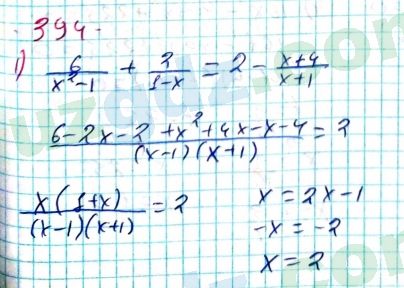 394.
1) 6/(x²-1) + 2/(1-x) = 2 - (x+4)/(x+1)
(6-2x-2+x²+4x-x-4)/((x-1)(x+1)) = 2
x(1+x)/((x-1)(x+1)) = 2 x = 2x-1
-x = -2
x = 2